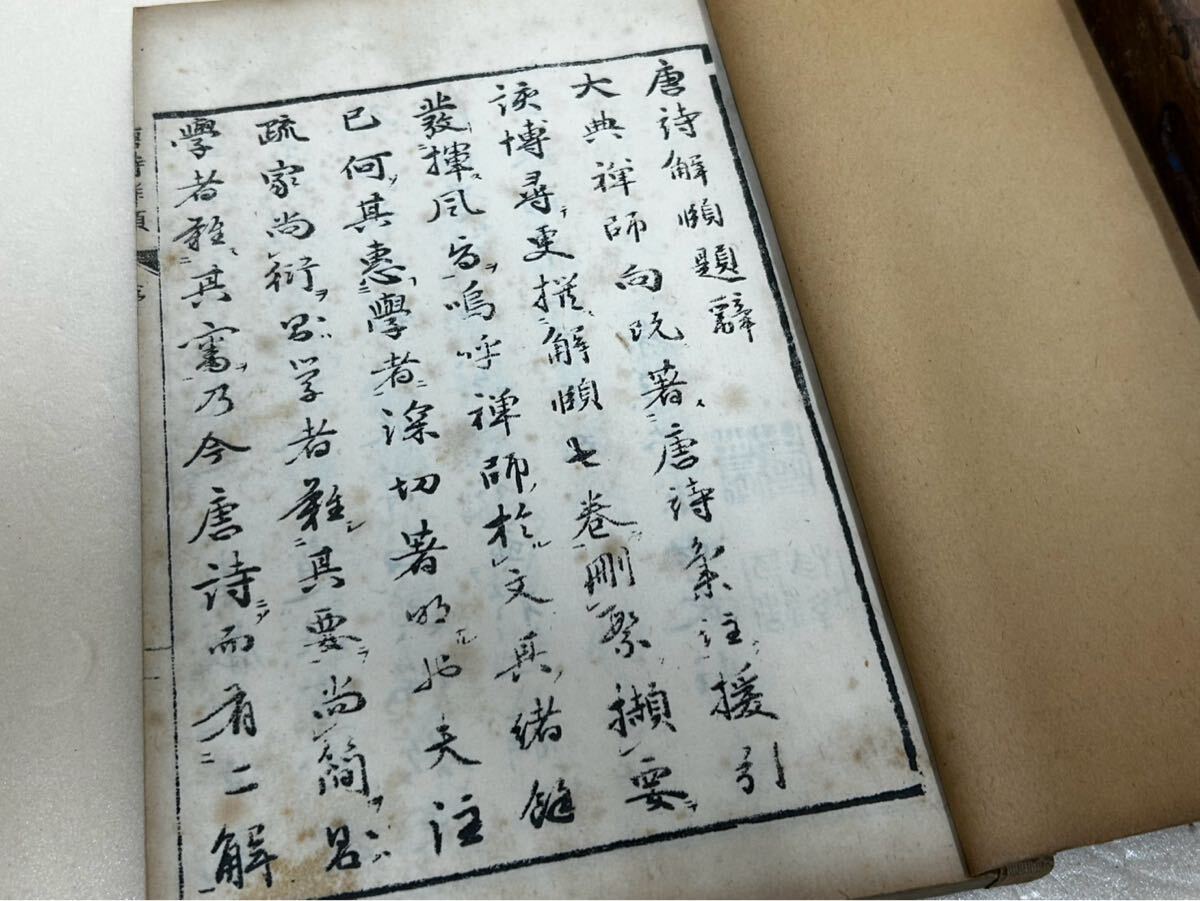 唐詩解頤題辭
大典禅師向既著唐詩集注援引
該博尋更撰解頤七卷刪繁擷要
發揮風旨嗚呼禅師於文其緒餘
已何其惠學者深切著明也夫注
疏家尚衍則学者難其要尚簡則
學者難其審乃今唐詩而有二解
唐詩解頤